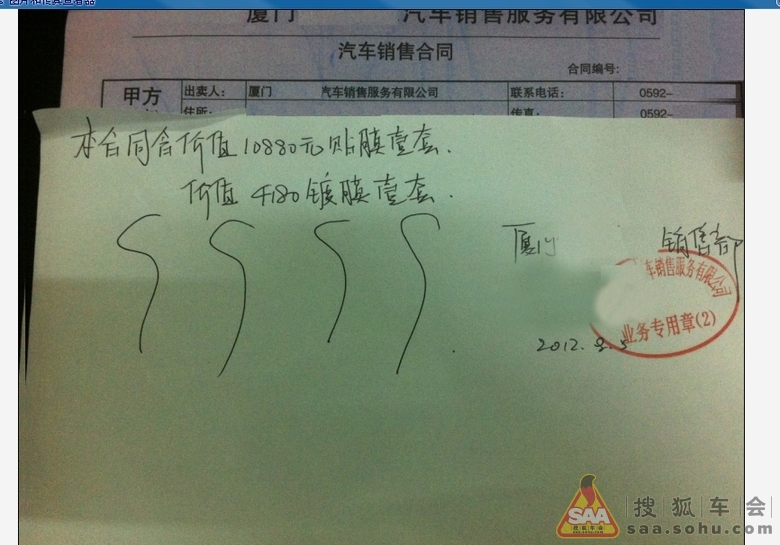 图片和传真查看器
厦门 汽车销售服务有限公司
汽车销售合同
合同编号:
甲方 出卖人: 厦门 汽车销售服务有限公司 联系电话: 0592-
住所: 传真: 0592-
本合同含价值10880元贴膜壹套.
价值4180镀膜壹套.
厦门 销售部
车销售服务有限公司
业务专用章(2)
2012.8.5
SAA
搜狐车会
saa.sohu.com